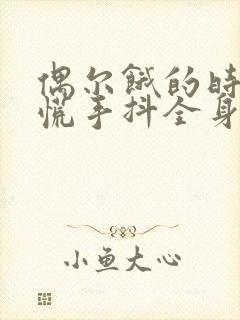 偶尔饿的时
慌手抖全身
小鱼大心